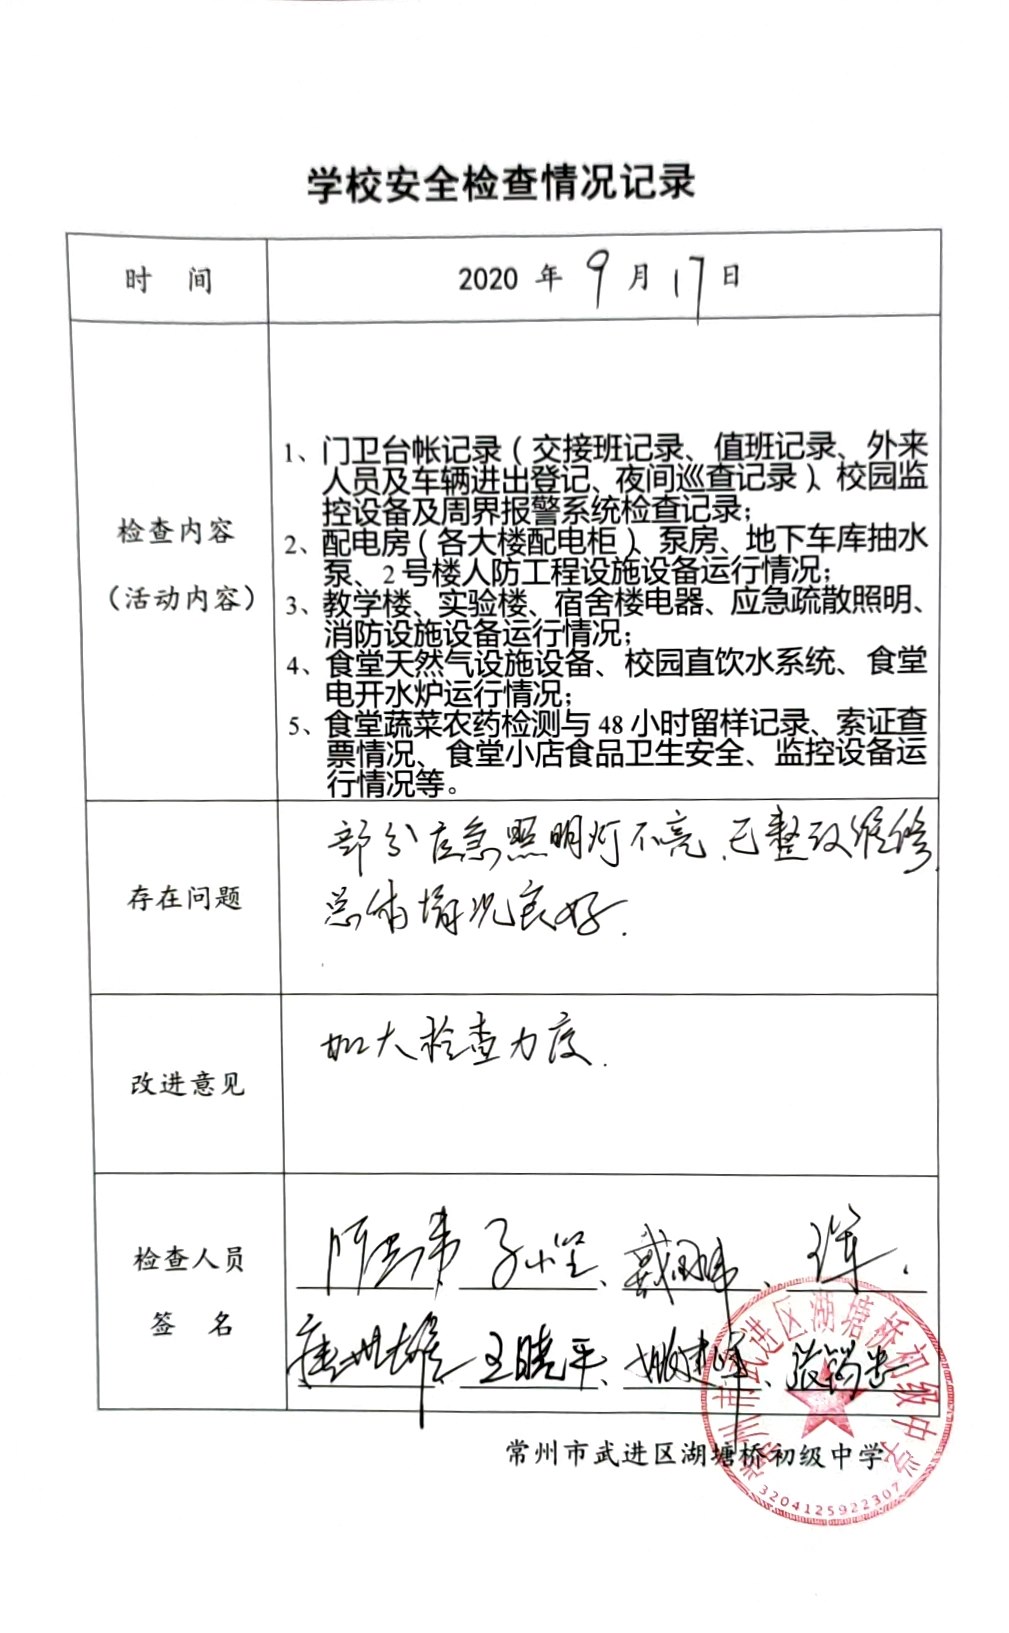 学校安全检查情况记录
时 间
2020 年 9 月 17 日
检查内容
（活动内容）
1、门卫台帐记录（交接班记录、值班记录、外来
人员及车辆进出登记、夜间巡查记录）、校园监
控设备及周界报警系统检查记录；
2、配电房（各大楼配电柜）、泵房、地下车库抽水
泵、2号楼人防工程设施设备运行情况；
3、教学楼、实验楼、宿舍楼电器、应急疏散照明、
消防设施设备运行情况；
4、食堂天然气设施设备、校园直饮水系统、食堂
电开水炉运行情况；
5、食堂蔬菜农药检测与 48 小时留样记录、索证查
票情况、食堂小店食品卫生安全、监控设备运
行情况等。
存在问题
部分应急照明灯不亮，已整改维修，
总体情况良好.
改进意见
加大检查力度.
检查人员
签 名
王晓平、
常州市武进区湖塘桥初级中学
常州市武进区湖塘桥初级中学
3204125922307